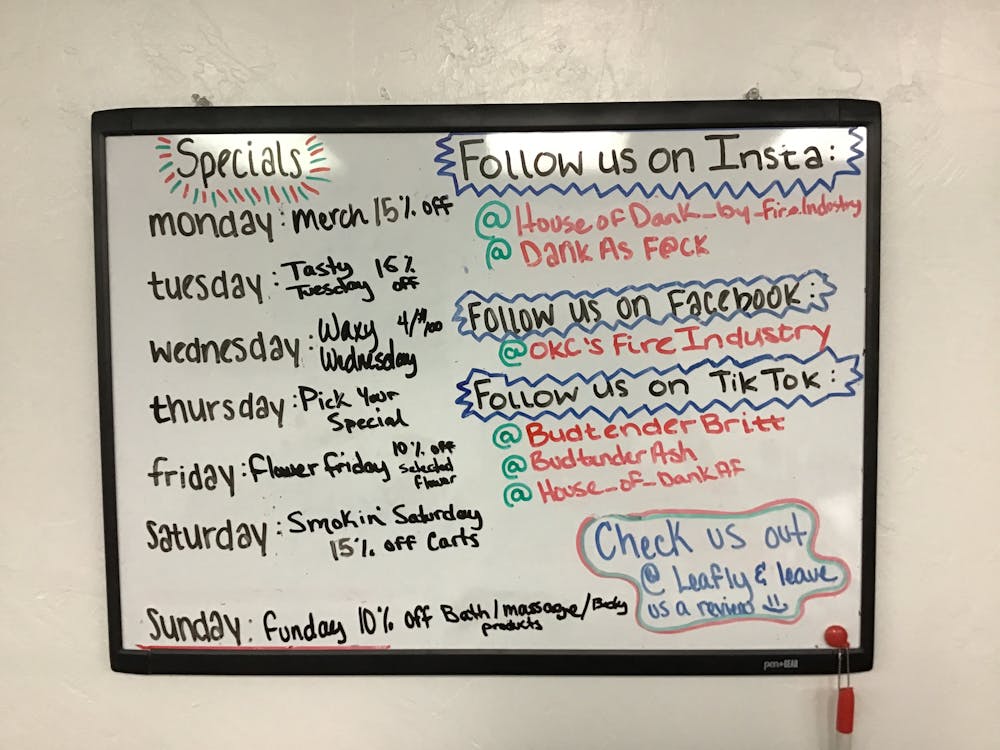 Specials
monday: Merch 15% off
tuesday: Tasty 15%
Tuesday off
wednesday: Waxy
Wednesday
thursday: Pick Your
Special
friday: Flower Friday 10% off
selected
flower
saturday: Smokin' Saturday
15% off Carts
Sunday: Funday 10% off Bath/massage/Body
products
Follow us on Insta:
@House of Dank_by_Fire.Industry
@ Dank As F@CK
Follow us on Facebook:
@OKC's Fire Industry
Follow us on TikTok:
@ Budtender Britt
@ Budtender Ash
@ House_of_DankAF
Check us out
@ Leafly & leave
us a review
pen+GEAR